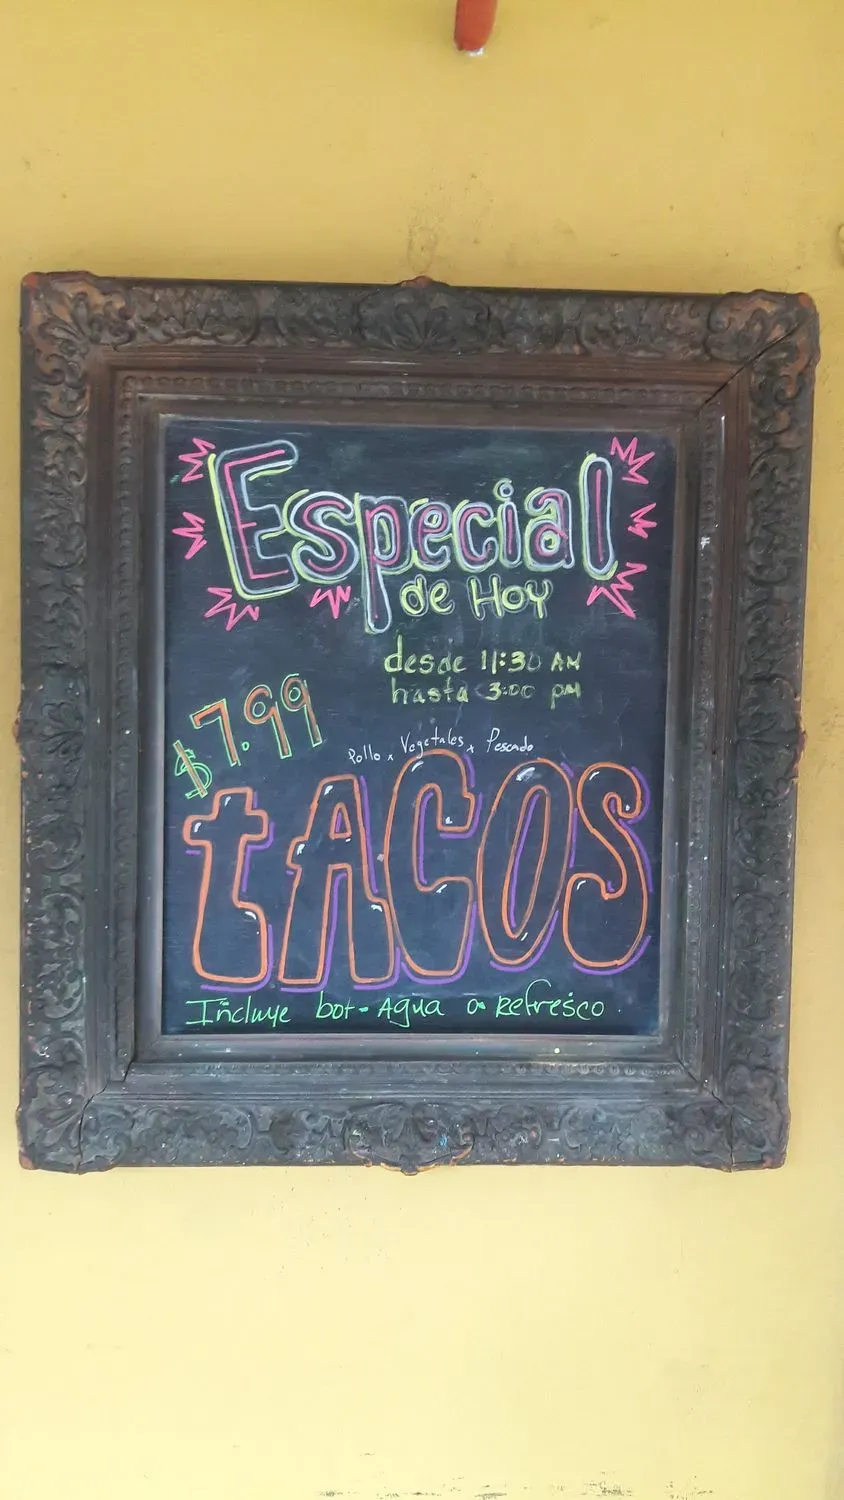 Especial
de Hoy
desde 11:30 AM
hasta 3:00 pm
$7.99
Pollo x Vegetales x Pescado
tACOS
Incluye bot- Agua o Refresco.